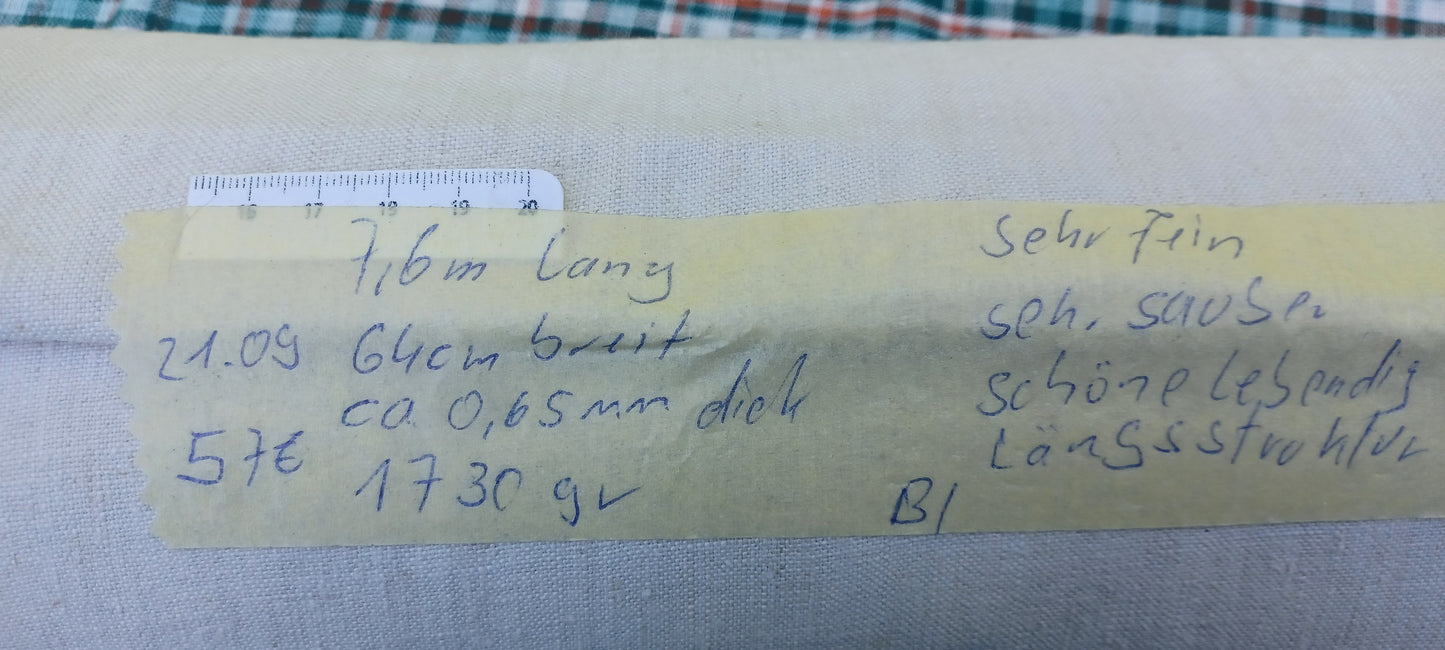 16 17 18 19 20
7,6m lang
21.09 64cm breit
ca. 0,65mm dick
57€ 1730 gr
B/
sehr fein
seh. sauber
schöne lebendig
Längsstruktur